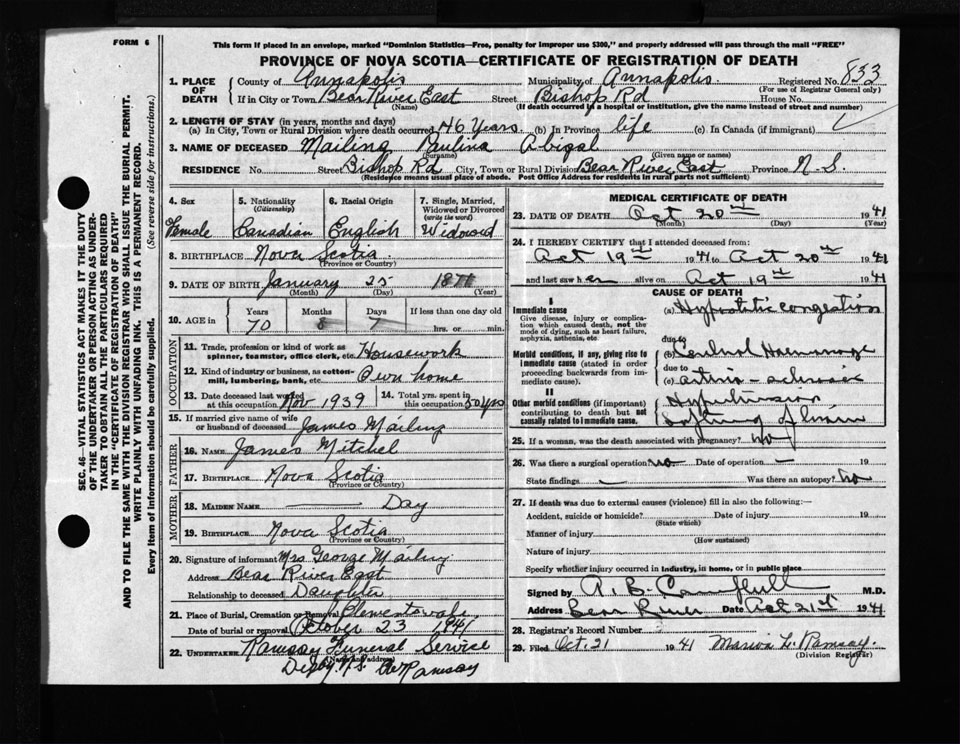 FORM 6
This form if placed in an envelope, marked "Dominion Statistics—Free, penalty for improper use $300," and properly addressed will pass through the mail "FREE"
PROVINCE OF NOVA SCOTIA—CERTIFICATE OF REGISTRATION OF DEATH
SEC. 46—VITAL STATISTICS ACT MAKES IT THE DUTY
OF THE UNDERTAKER OR PERSON ACTING AS UNDER-
TAKER TO OBTAIN ALL THE PARTICULARS REQUIRED
IN THE "CERTIFICATE OF REGISTRATION OF DEATH"
AND TO FILE THE SAME WITH THE DIVISION REGISTRAR WHO SHALL ISSUE THE BURIAL PERMIT.
WRITE PLAINLY WITH UNFADING INK. THIS IS A PERMANENT RECORD.
Every item of information should be carefully supplied. (See reverse side for instructions.)
1. PLACE OF DEATH County of Annapolis Municipality of Annapolis. Registered No. 833
(For use of Registrar General only)
If in City or Town Bear River East Street Bishop Rd House No.
(Name) (If death occurred in a hospital or institution, give the name instead of street and number)
2. LENGTH OF STAY (in years, months and days)
(a) In City, Town or Rural Division where death occurred 46 Years. (b) In Province life (c) In Canada (if immigrant)
3. NAME OF DECEASED Mailing Paulina Abigal
(Surname) (Given name or names)
RESIDENCE No. Street Bishop Rd City, Town or Rural Division Bear River East Province N.S.
(Residence means usual place of abode. Post Office Address for residents in rural parts not sufficient)
4. Sex 5. Nationality (Citizenship) 6. Racial Origin 7. Single, Married, Widowed or Divorced (write the word)
Female Canadian English Widowed
8. BIRTHPLACE Nova Scotia
(Province or Country)
9. DATE OF BIRTH January 25
(Month) (Day) (Year)
10. AGE in Years Months Days If less than one day old
70 8 7 hrs. or min.
OCCUPATION
11. Trade, profession or kind of work as spinner, teamster, office clerk, etc. Housework
12. Kind of industry or business, as cotton-mill, lumbering, bank, etc. Own home
13. Date deceased last worked at this occupation Nov 1939 14. Total yrs. spent in this occupation 50 yrs
15. If married give name of wife or husband of deceased James Mailing
FATHER
16. NAME James Mitchel
17. BIRTHPLACE Nova Scotia
(Province or Country)
MOTHER
18. MAIDEN NAME — Day
19. BIRTHPLACE Nova Scotia
(Province or Country)
20. Signature of informant Mrs George Mailing
Address Bear River East
Relationship to deceased Daughter
21. Place of Burial, Cremation or Removal
Date of burial or removal October 23 1941
22. UNDERTAKER Ramsay Funeral Service
(Name and address)
Digby N.S. Ramsay
MEDICAL CERTIFICATE OF DEATH
23. DATE OF DEATH Oct 20 1941
(Month) (Day) (Year)
24. I HEREBY CERTIFY that I attended deceased from:
Oct 19th 1941 to Oct 20th 1941
and last saw her alive on Oct 19th 1941
CAUSE OF DEATH
I
Immediate cause
Give disease, injury or complication which caused death, not the mode of dying, such as heart failure, asphyxia, asthenia, etc.
(a) Hypostatic congestion
due to
Morbid conditions, if any, giving rise to immediate cause (stated in order proceeding backwards from immediate cause).
(b) Cerebral Haemorrage
due to
(c) arterio-sclerosis
II
Other morbid conditions (if important) contributing to death but not causally related to immediate cause.
Hypertension
softning of brain
25. If a woman, was the death associated with pregnancy? no
26. Was there a surgical operation? no Date of operation — 19
State findings — Was there an autopsy? No
27. If death was due to external causes (violence) fill in also the following:—
Accident, suicide or homicide? Date of injury 19
(State which)
Manner of injury
(How sustained)
Nature of injury
Specify whether injury occurred in industry, in home, or in public place
Signed by A. B. Campbell M.D.
Address Bear River Date Oct 21st 1941
28. Registrar's Record Number
29. Filed Oct. 21 1941 L. Ramsay.
(Division Registrar)